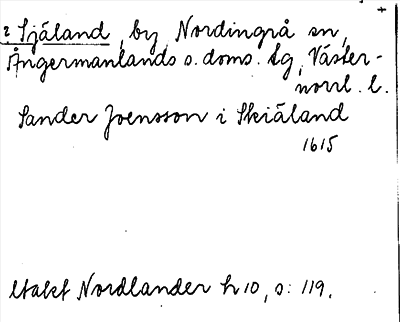 +
2 Själand, by, Nordingrå sn,
Ångermanlands s. doms. tg, Väster-
norrl. l.
Sander Joensson i Skiäland
1615
Utakt Nordlander h 10, s: 119.